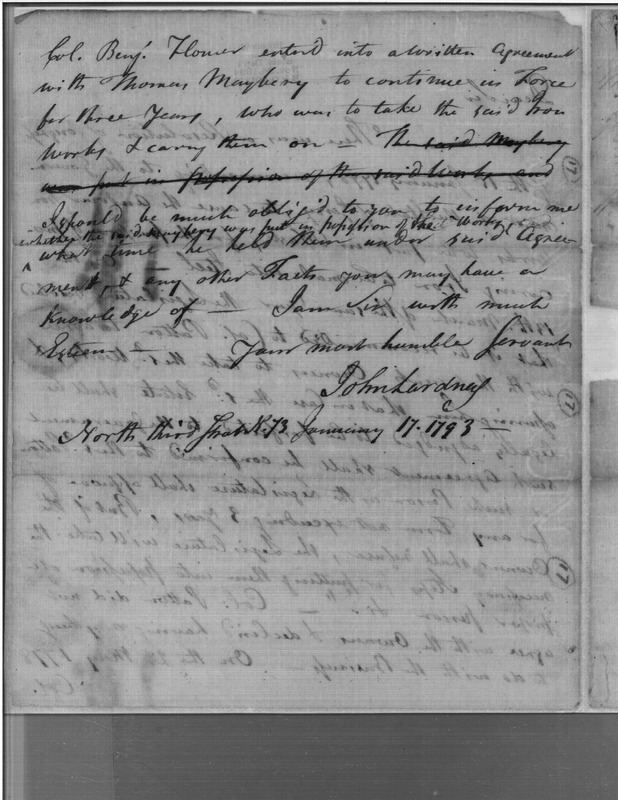 Col. Benj. Flower enterd into a written Agreement
with Thomas Maybery to continue in Force
for three Years, who was to take the said Iron
Works & carry them on — The said Maybery
was put in Possession of the said Works and
I should be much oblig'd to you to inform me
whether the said Maybery was put in possession of the Works &
what time he held them under said Agree-
ment, & any other Facts you may have a
Knowledge of — I am Sir with much
Esteem — Your most humble Servant
John Lardner
North third Street No. 73 January 17. 1793 —